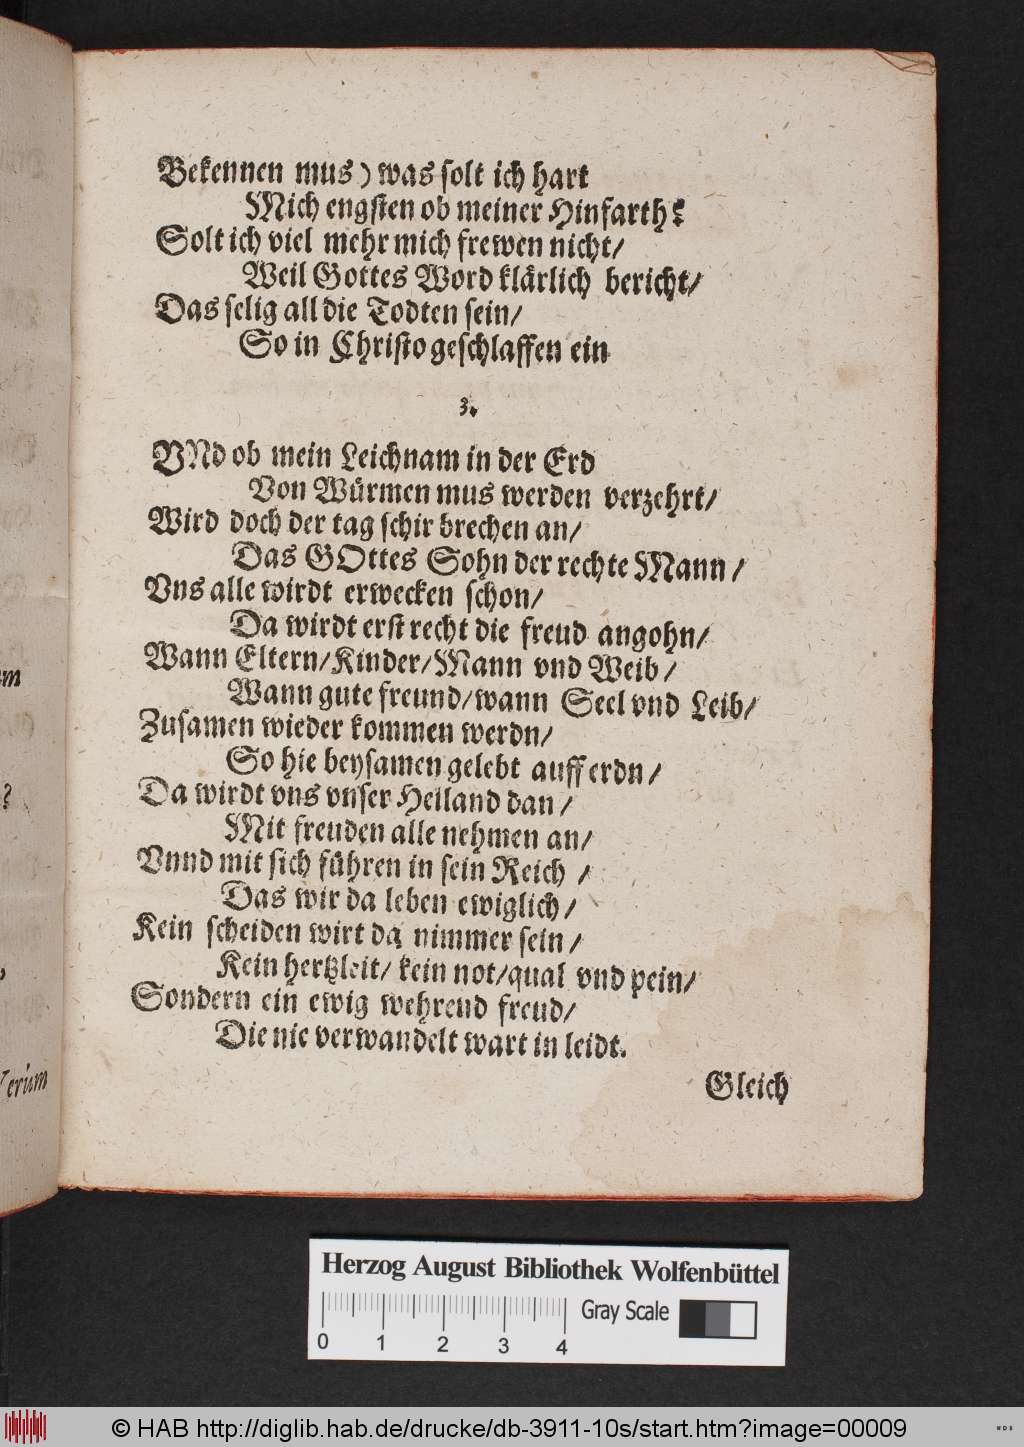 Bekennen mus) was solt ich hart
Mich engsten ob meiner Hinfarth?
Solt ich viel mehr mich frewen nicht/
Weil Gottes Word klärlich bericht/
Das selig all die Todten sein/
So in Christo geschlaffen ein
3.
VNd ob mein Leichnam in der Erd
Von Würmen mus werden verzehrt/
Wird doch der tag schir brechen an/
Das GOttes Sohn der rechte Mann/
Vns alle wirdt erwecken schon/
Da wirdt erst recht die freud angohn/
Wann Eltern/Kinder/Mann vnd Weib/
Wann gute freund/wann Seel vnd Leib/
Zusamen wieder kommen werdn/
So hie beysamen gelebt auff erdn/
Da wirdt vns vnser Heiland dan/
Mit freuden alle nehmen an/
Vnnd mit sich führen in sein Reich /
Das wir da leben ewiglich/
Kein scheiden wirt da nimmer sein/
Kein hertzleit/ kein not/qual vnd pein/
Sondern ein ewig wehrend freud/
Die nie verwandelt wart in leidt.
Gleich
?
Verum
Herzog August Bibliothek Wolfenbüttel
Gray Scale
0 1 2 3 4
© HAB http://diglib.hab.de/drucke/db-3911-10s/start.htm?image=00009